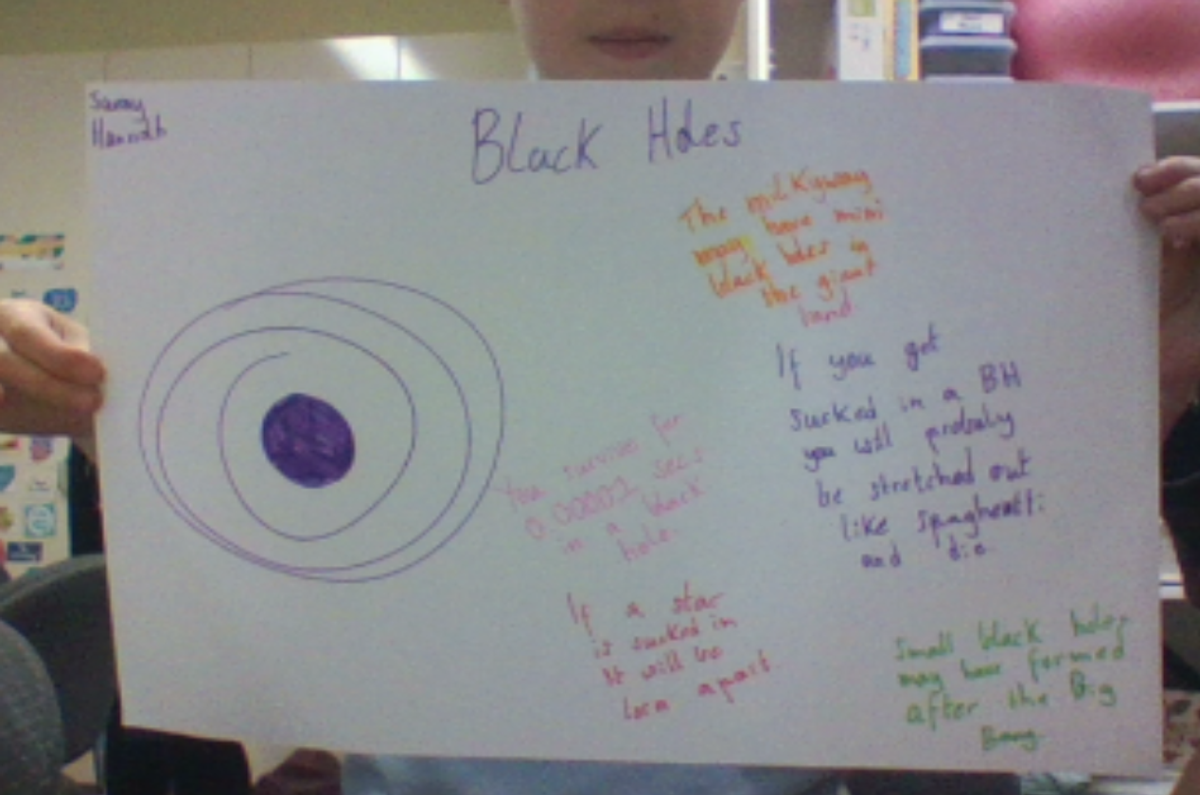 Black Holes
The milkyway
may have mini
black holes in
the giant
land
If you get
sucked in a BH
you will probably
be stretched out
like spagheatti
and die.
You survive for
0.00001 secs
in a black
hole.
If a star
is sucked in
it will be
torn apart
Small black holes
may have formed
after the Big
Bang.